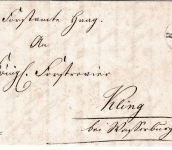 Forstamte Haag.
An
Königl. Forstrevier
Kling
bei Wasserburg